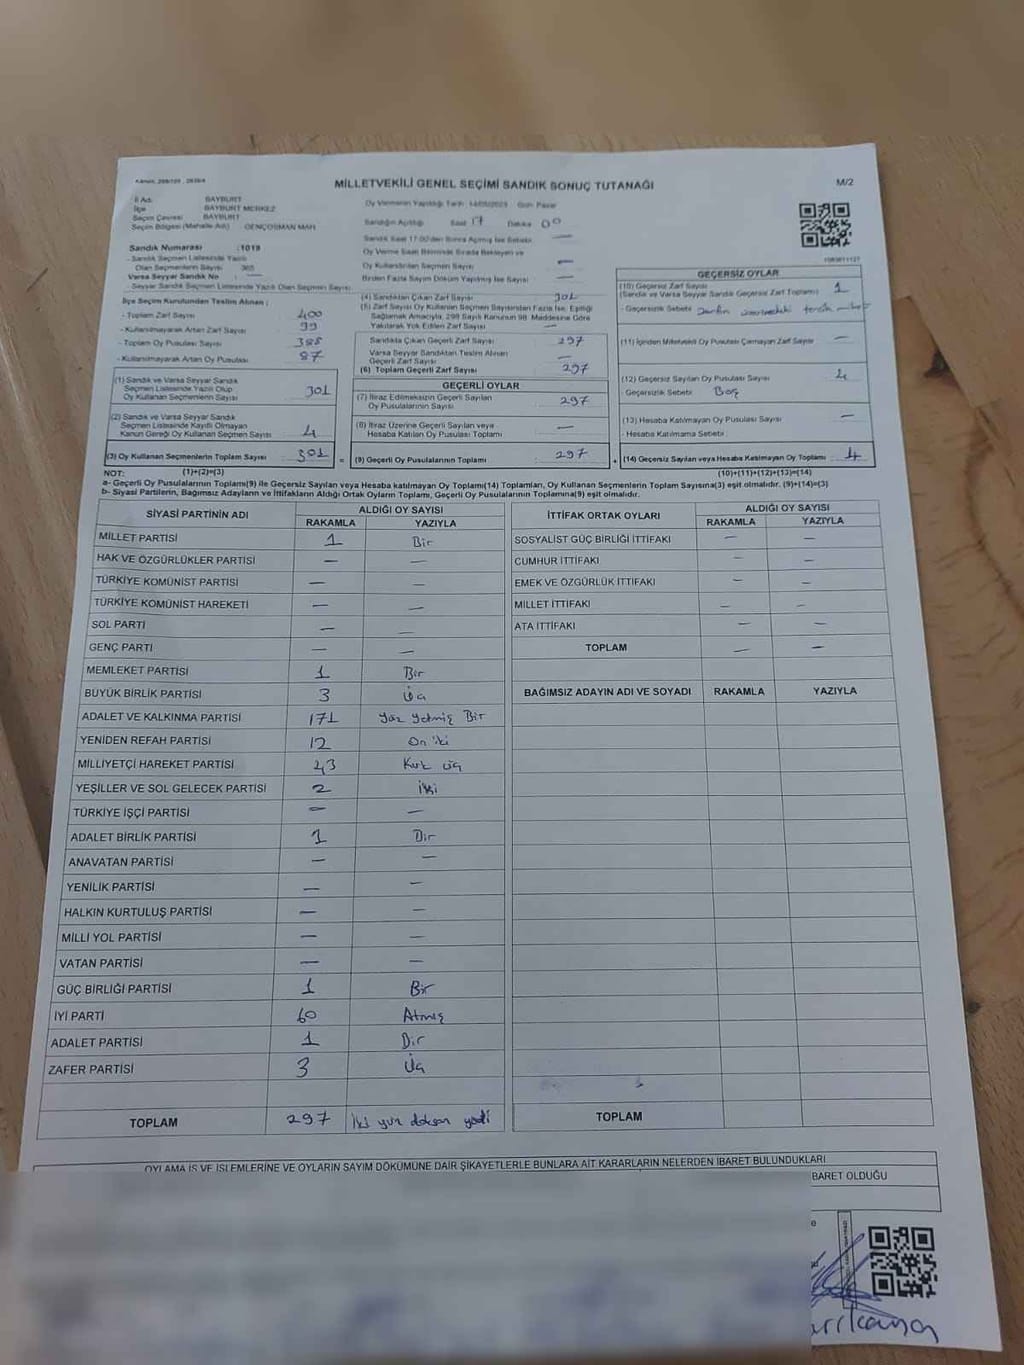 MİLLETVEKİLİ GENEL SEÇİMİ SANDIK SONUÇ TUTANAĞI
M/2
İl Adı BAYBURT
İlçe BAYBURT MERKEZ
Seçim Çevresi BAYBURT
Seçim Bölgesi (Mahalle Adı) GENÇOSMAN MAH.
Oy Vermenin Yapıldığı Tarih: 14/05/2023 Gün: Pazar
Sandığın Açıldığı Saat 17 Dakika 00
Sandık Saat 17:00'den Sonra Açılmış İse Sebebi —
Oy Verme Saati Bitiminde Sırada Bekleyen ve
Oy Kullandırılan Seçmen Sayısı —
Birden Fazla Sayım Döküm Yapılmış İse Sayısı —
Sandık Numarası :1019
- Sandık Seçmen Listesinde Yazılı
Olan Seçmenlerin Sayısı 365
Varsa Seyyar Sandık No : —
- Seyyar Sandık Seçmen Listesinde Yazılı Olan Seçmen Sayısı:
İlçe Seçim Kurulundan Teslim Alınan :
- Toplam Zarf Sayısı 400
- Kullanılmayarak Artan Zarf Sayısı 99
- Toplam Oy Pusulası Sayısı 388
- Kullanılmayarak Artan Oy Pusulası 87
(1) Sandık ve Varsa Seyyar Sandık
Seçmen Listesinde Yazılı Olup
Oy Kullanan Seçmenlerin Sayısı 301
(2) Sandık ve Varsa Seyyar Sandık
Seçmen Listesinde Kayıtlı Olmayan
Kanun Gereği Oy Kullanan Seçmen Sayısı 4
(3) Oy Kullanan Seçmenlerin Toplam Sayısı 301
(4) Sandıktan Çıkan Zarf Sayısı 301
(5) Zarf Sayısı Oy Kullanan Seçmen Sayısından Fazla İse, Eşitliği
Sağlamak Amacıyla, 298 Sayılı Kanunun 98. Maddesine Göre
Yakılarak Yok Edilen Zarf Sayısı —
Sandıkta Çıkan Geçerli Zarf Sayısı 297
Varsa Seyyar Sandıktan Teslim Alınan
Geçerli Zarf Sayısı —
(6) Toplam Geçerli Zarf Sayısı 297
GEÇERLİ OYLAR
(7) İtiraz Edilmeksizin Geçerli Sayılan
Oy Pusulalarının Sayısı 297
(8) İtiraz Üzerine Geçerli Sayılan veya
Hesaba Katılan Oy Pusulaları Toplamı —
= (9) Geçerli Oy Pusulalarının Toplamı 297
GEÇERSİZ OYLAR
(10) Geçersiz Zarf Sayısı
(Sandık ve Varsa Seyyar Sandık Geçersiz Zarf Toplamı) 1
- Geçersizlik Sebebi: Zarfın üzerindeki tercih
(11) İçinden Milletvekili Oy Pusulası Çıkmayan Zarf Sayısı —
(12) Geçersiz Sayılan Oy Pusulası Sayısı 4
Geçersizlik Sebebi: Boş
(13) Hesaba Katılmayan Oy Pusulası Sayısı —
- Hesaba Katılmama Sebebi:
+ (14) Geçersiz Sayılan veya Hesaba Katılmayan Oy Toplamı 4
NOT: (1)+(2)=(3) (10)+(11)+(12)+(13)=(14)
a- Geçerli Oy Pusulalarının Toplamı(9) ile Geçersiz Sayılan veya Hesaba katılmayan Oy Toplamı(14) Toplamları, Oy Kullanan Seçmenlerin Toplam Sayısına(3) eşit olmalıdır. (9)+(14)=(3)
b- Siyasi Partilerin, Bağımsız Adayların ve İttifakların Aldığı Ortak Oyların Toplamı, Geçerli Oy Pusulalarının Toplamına(9) eşit olmalıdır.
SİYASİ PARTİNİN ADI ALDIĞI OY SAYISI
RAKAMLA YAZIYLA
MİLLET PARTİSİ 1 Bir
HAK VE ÖZGÜRLÜKLER PARTİSİ — —
TÜRKİYE KOMÜNİST PARTİSİ — —
TÜRKİYE KOMÜNİST HAREKETİ — —
SOL PARTİ — —
GENÇ PARTİ — —
MEMLEKET PARTİSİ 1 Bir
BÜYÜK BİRLİK PARTİSİ 3 üç
ADALET VE KALKINMA PARTİSİ 171 Yüz Yetmiş Bir
YENİDEN REFAH PARTİSİ 12 On iki
MİLLİYETÇİ HAREKET PARTİSİ 43 Kırk üç
YEŞİLLER VE SOL GELECEK PARTİSİ 2 İki
TÜRKİYE İŞÇİ PARTİSİ — —
ADALET BİRLİK PARTİSİ 1 Bir
ANAVATAN PARTİSİ — —
YENİLİK PARTİSİ — —
HALKIN KURTULUŞ PARTİSİ — —
MİLLİ YOL PARTİSİ — —
VATAN PARTİSİ — —
GÜÇ BİRLİĞİ PARTİSİ 1 Bir
İYİ PARTİ 60 Atmış
ADALET PARTİSİ 1 Bir
ZAFER PARTİSİ 3 Üç
TOPLAM 297 İki yüz doksan yedi
İTTİFAK ORTAK OYLARI ALDIĞI OY SAYISI
RAKAMLA YAZIYLA
SOSYALİST GÜÇ BİRLİĞİ İTTİFAKI — —
CUMHUR İTTİFAKI — —
EMEK VE ÖZGÜRLÜK İTTİFAKI — —
MİLLET İTTİFAKI — —
ATA İTTİFAKI — —
TOPLAM — —
BAĞIMSIZ ADAYIN ADI VE SOYADI RAKAMLA YAZIYLA
TOPLAM
OYLAMA İŞ VE İŞLEMLERİNE VE OYLARIN SAYIM DÖKÜMÜNE DAİR ŞİKAYETLERLE BUNLARA AİT KARARLARIN NELERDEN İBARET BULUNDUKLARI
BARET OLDUĞU